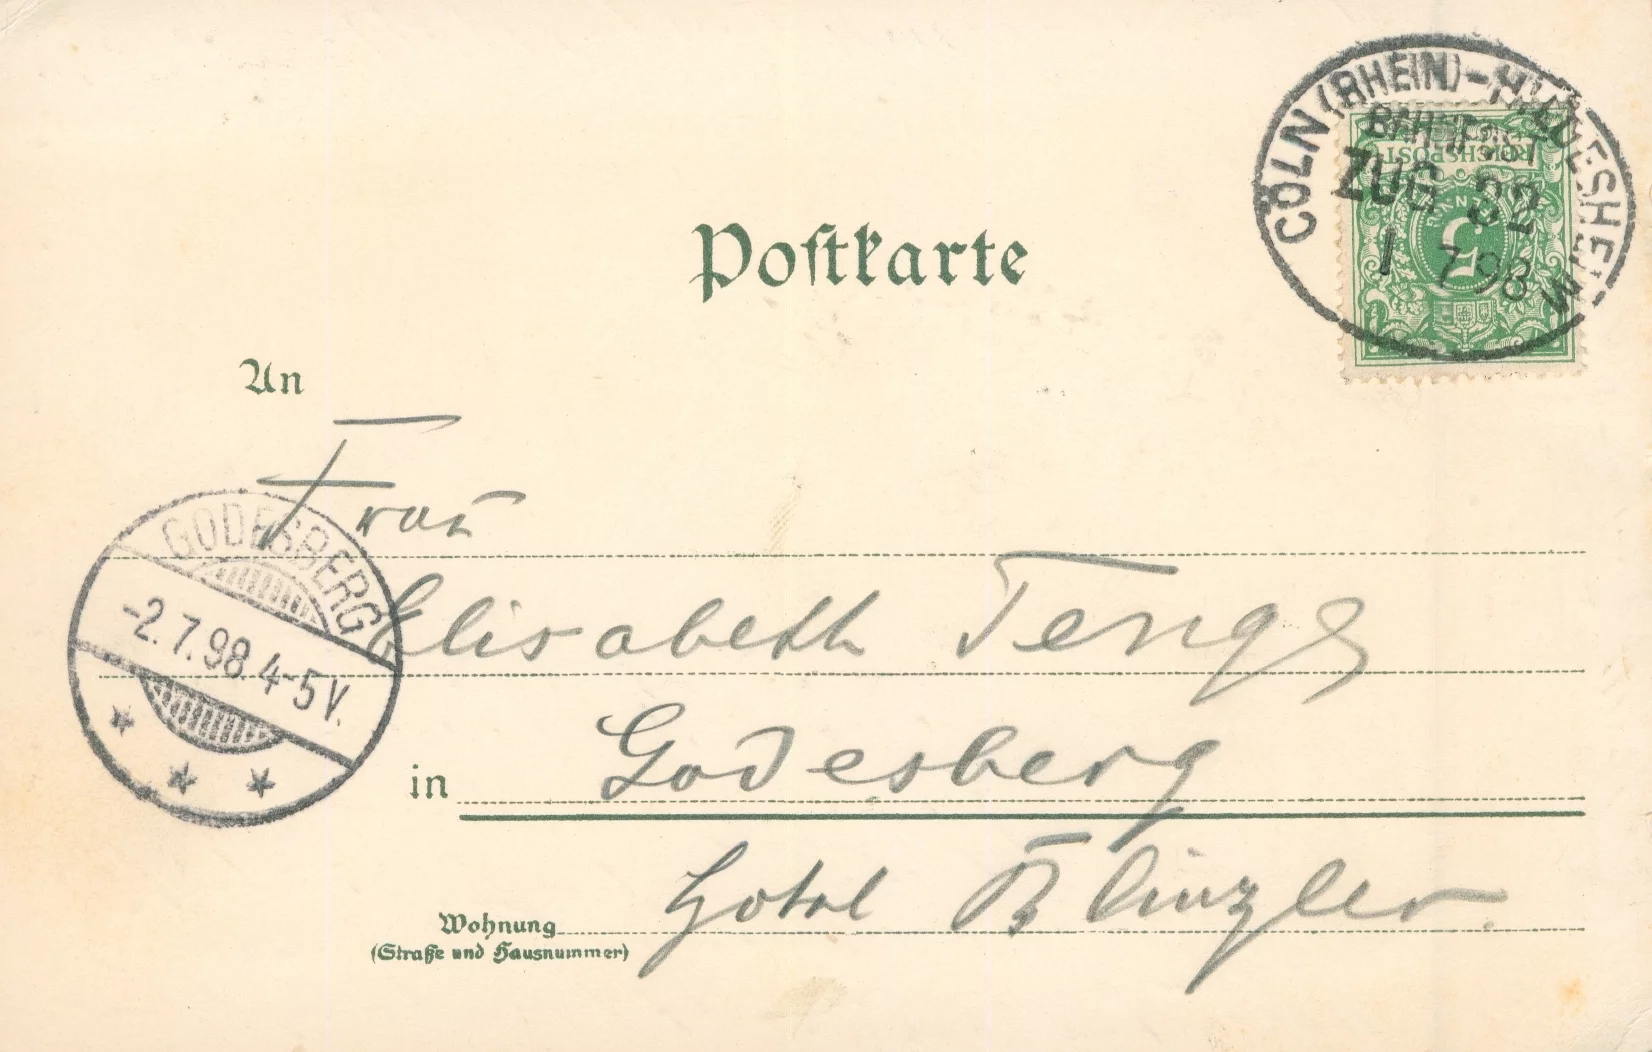 CÖLN (RHEIN)-HILDESHEIM
BAHNPOST
ZUG 32
1 7 98
REICHSPOST
5
Postkarte
An
Frau
GODESBERG
-2.7.98.4-5V.
Elisabeth Tenge
in Godesberg
Hotel Blinzler.
Wohnung
(Straße und Hausnummer)